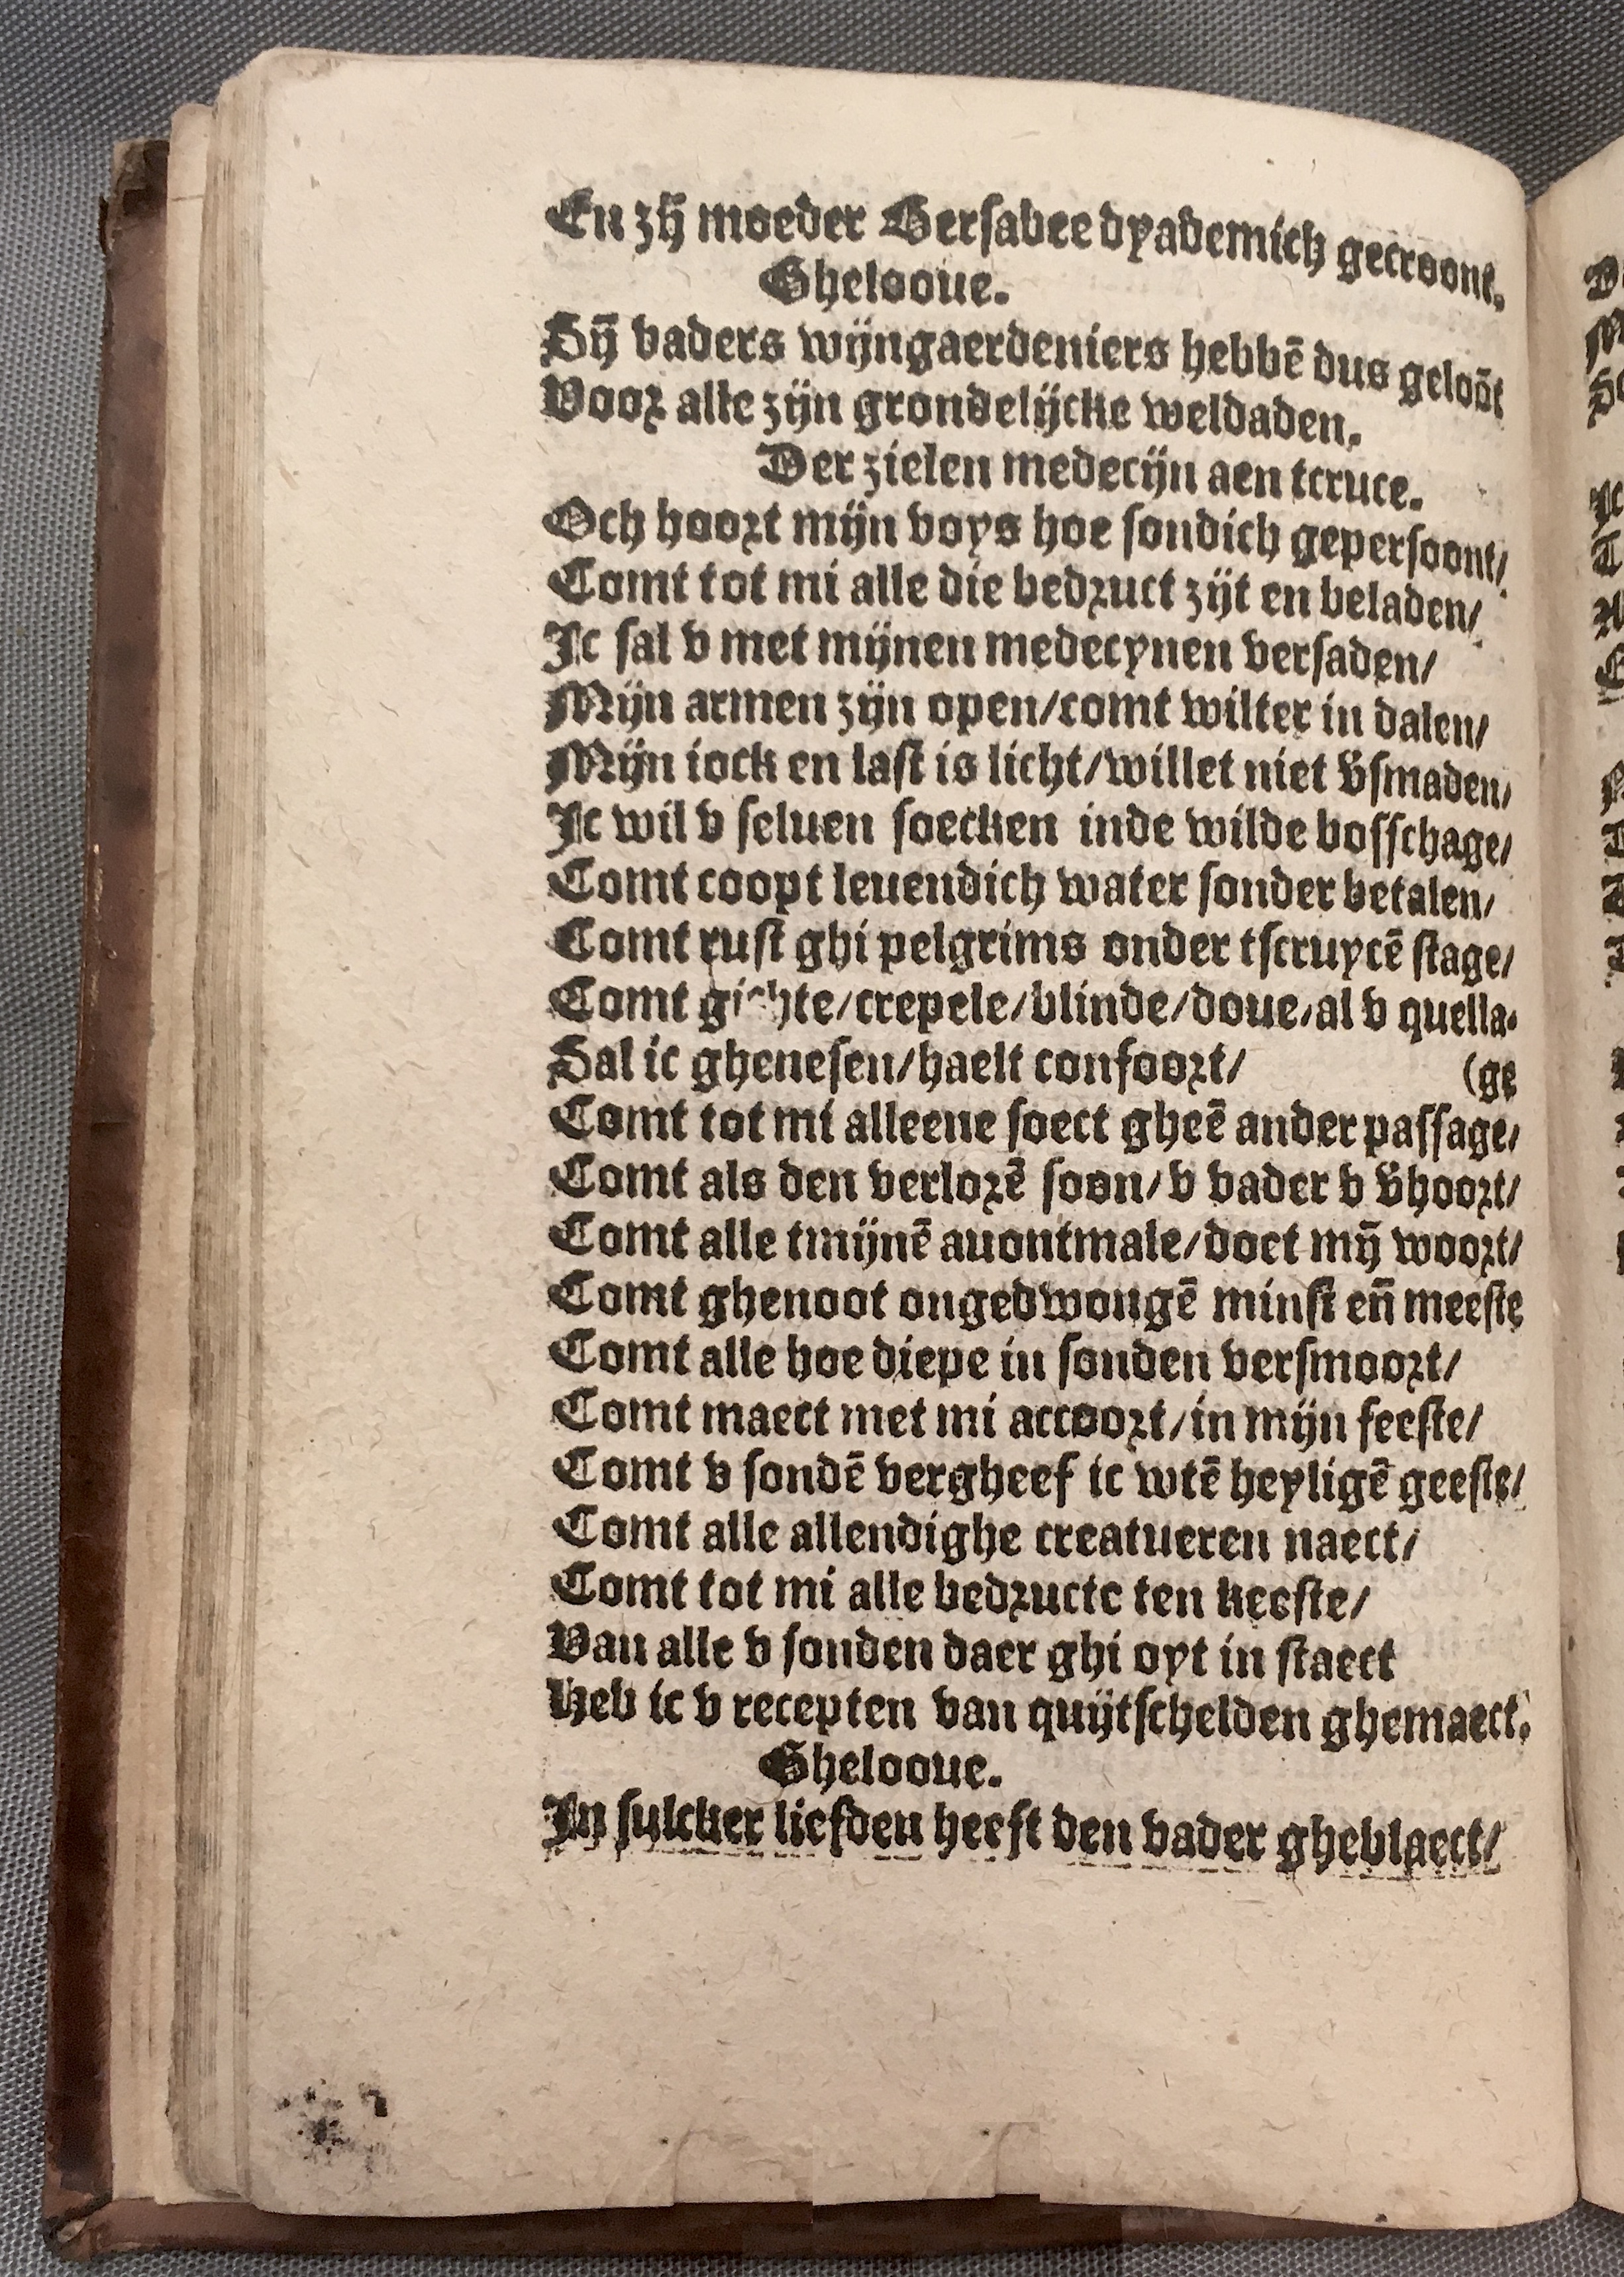 En zij̄ moeder Bersabee dyademich gecroont.
Ghelooue.
Sij̄ vaders wijngaerdeniers hebbē dus geloōt
Voor alle zijn grondelijcke weldaden.
Der zielen medecijn aen tcruce.
Och hoort mijn voys hoe sondich gepersoont/
Comt tot mi alle die bedruct zijt en beladen/
Ic sal v met mijnen medecynen versaden/
Mijn armen zijn open/comt wilter in dalen/
Mijn iock en last is licht/willet niet v̄smaden/
Ic wil v seluen soecken inde wilde bosschage/
Comt coopt leuendich water sonder betalen/
Comt rust ghi pelgrims onder tscruycē stage/
Comt /crepele/blinde/doue/al v quella-
Sal ic ghenesen/haelt confoort/ (ge
Comt tot mi alleene soect gheē ander passage/
Comt als den verlorē soon/v vader v v̄hoort/
Comt alle tmijnē auontmale/doet mij̄ woort/
Comt ghenoot ongedwongē minst en̄ meeste
Comt alle hoe diepe in sonden versmoort/
Comt maect met mi accoort/in mijn feeste/
Comt v sondē vergheef ic wtē heyligē geeste/
Comt alle allendighe creatueren naect/
Comt tot mi alle bedructe ten keeste/
Van alle v sonden daer ghi oyt in staect
Heb ic v recepten van quijtschelden ghemaect.
Ghelooue.
In sulcker liefden heeft den vader gheblaect/